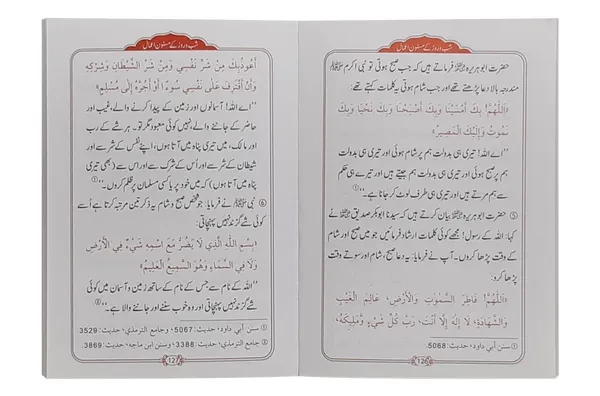 شب و روز کے مسنون اعمال
حضرت ابو ہریرہ ﷜ فرماتے ہیں کہ جب صبح ہوتی تو نبی اکرم ﷺ
مندرجہ بالا دعا پڑھتے تھے اور جب شام ہوتی یہ کلمات کہتے تھے:
«اَللّٰهُمَّ! بِكَ أَمْسَيْنَا وَبِكَ أَصْبَحْنَا وَبِكَ نَحْيَا وَبِكَ
نَمُوْتُ وَإِلَيْكَ الْمَصِيْرُ»
”اے اللہ! تیری ہی بدولت ہم پر شام ہوئی اور تیری ہی بدولت
ہم پر صبح ہوئی اور تیری ہی بدولت ہم جیتے ہیں اور تیرے ہی حکم
سے ہم مرتے ہیں اور تیری ہی طرف لوٹ کر جانا ہے۔“①
⑤ حضرت ابو ہریرہ ﷜ بیان کرتے ہیں کہ سیدنا ابوبکر صدیق ﷜ نے
کہا: اللہ کے رسول! مجھے کوئی کلمات ارشاد فرمائیں جو میں صبح اور شام
کے وقت پڑھا کروں۔ آپ نے فرمایا: یہ دعا صبح، شام اور سوتے وقت
پڑھا کرو:
«اَللّٰهُمَّ! فَاطِرَ السَّمٰوٰتِ وَالْأَرْضِ، عَالِمَ الْغَيْبِ
وَالشَّهَادَةِ، لَا إِلٰهَ إِلَّا أَنْتَ، رَبَّ كُلِّ شَيْءٍ وَّمَلِيْكَهُ،
① سنن أبي داود، حديث: 5068.
126
شب و روز کے مسنون اعمال
أَعُوْذُبِكَ مِنْ شَرِّ نَفْسِي وَمِنْ شَرِّ الشَّيْطَانِ وَشِرْكِهِ
وَأَنْ أَقْتَرِفَ عَلٰى نَفْسِي سُوْءًا أَوْ أَجُرَّهُ إِلٰى مُسْلِمٍ»
”اے اللہ! آسمانوں اور زمین کے پیدا کرنے والے، غیب اور
حاضر کے جاننے والے، نہیں کوئی معبود مگر تو۔ ہر شے کے رب
اور مالک، میں تیری پناہ میں آتا ہوں، اپنے نفس کے شر سے اور
شیطان کے شر سے اور اُس کے شرک سے اور اس سے (بھی تیری
پناہ میں آتا ہوں) کہ میں خود پر یا کسی مسلمان پر ظلم کروں۔“①
⑥ نبی ﷺ نے فرمایا: جو شخص صبح و شام یہ ذکر تین مرتبہ کرتا ہے اُسے
کوئی شے گزند نہیں پہنچاتی:
«بِسْمِ اللهِ الَّذِي لَا يَضُرُّ مَعَ اسْمِهِ شَيْءٌ فِي الْأَرْضِ
وَلَا فِي السَّمَاءِ وَهُوَ السَّمِيْعُ الْعَلِيْمُ»
”اللہ کے نام سے جس کے نام کے ساتھ زمین و آسمان میں کوئی
شے گزند نہیں پہنچاتی اور وہ خوب سننے اور جاننے والا ہے۔“②
① سنن أبي داود، حديث: 5067، وجامع الترمذي، حديث: 3529.
② جامع الترمذي، حديث: 3388، وسنن ابن ماجه، حديث: 3869.
127